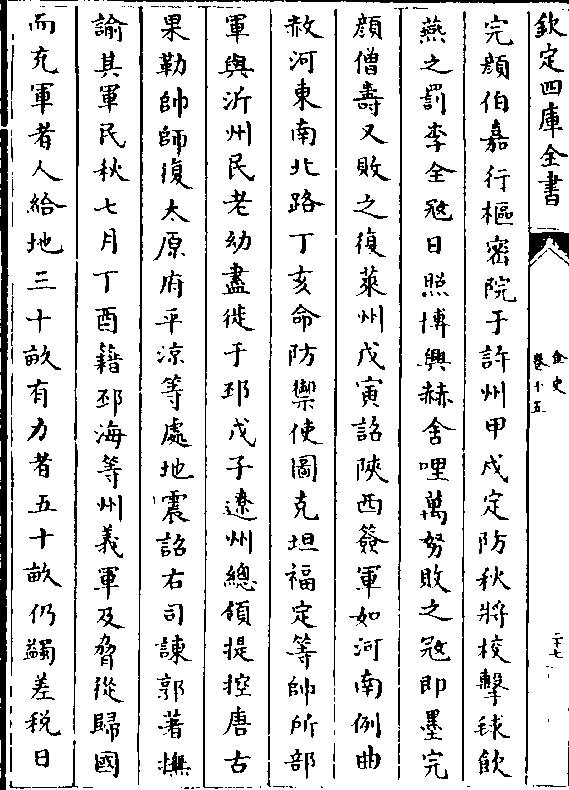 欽定四庫全書
金史
卷十五
二十七
完顔伯嘉行樞密院于許州甲戌定防秋將校擊毬飲
燕之罰李全冦日照博興赫舍哩萬努敗之冦即墨完
顔僧壽又敗之復萊州戊寅詔陜西簽軍如河南例曲
赦河東南北路丁亥命防禦使圖克坦福定等帥所部
軍與沂州民老幼盡徙于邳戊子遼州總領提控唐古
果勒帥師復太原府平涼等處地震詔右司諫郭著撫
諭其軍民秋七月丁酉籍邳海等州義軍及脅從歸國
而充軍者人給地三十畝有力者五十畝仍蠲差税日